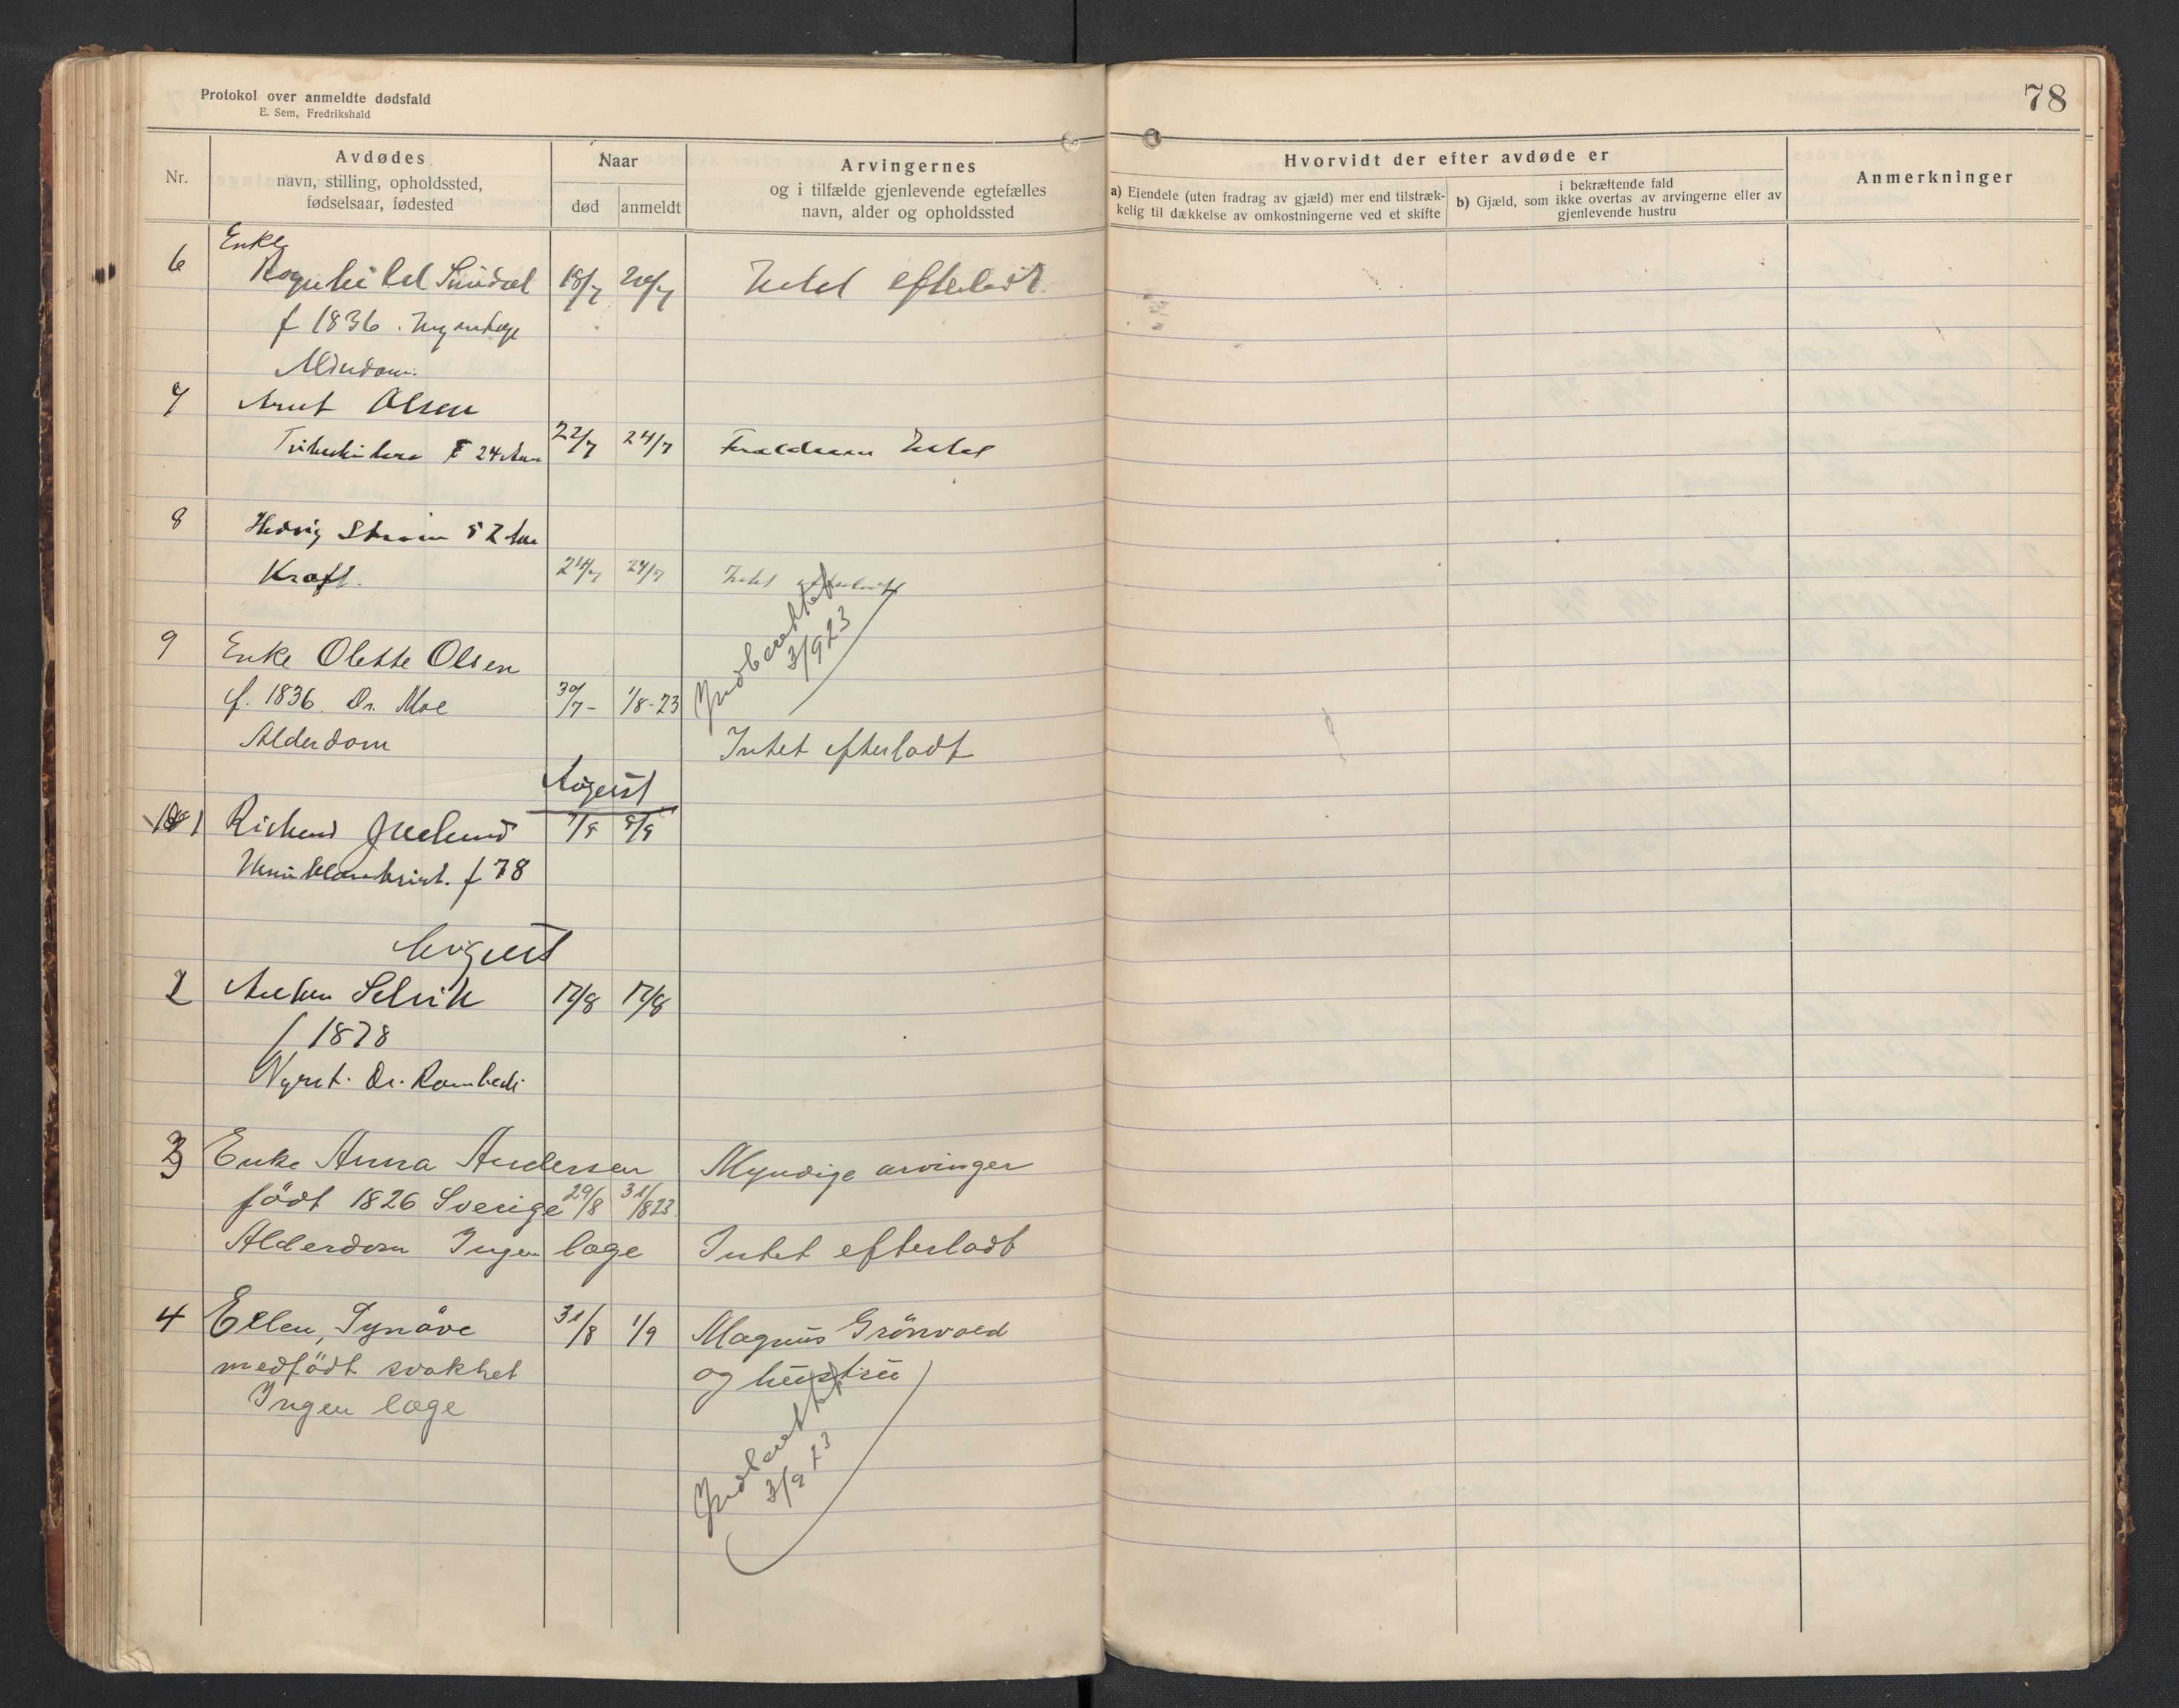 Protokol over anmeldte dødsfald
E. Sem, Fredrikshald
78
Nr.
Avdødes
navn, stilling, opholdssted,
fødselsaar, fødested
Naar
død
anmeldt
Arvingernes
og i tilfælde gjenlevende egtefælles
navn, alder og opholdssted
Hvorvidt der efter avdøde er
a) Eiendele (uten fradrag av gjæld) mer end tilstræk-
kelig til dækkelse av omkostningerne ved et skifte
i bekræftende fald
b) Gjæld, som ikke overtas av arvingerne eller av
gjenlevende hustru
Anmerkninger
6 Enke
18/7 Intet efterladt
f 1836.
7 Arnt Olsen
24 22/7 24/7 Intet
8 Hedvig 52
Kraft. 24/7 24/7 Intet efterladt
Indberettet
3/9 23
9 Enke Olette Olsen
f. 1836. Dr. Moe 30/7- 1/8-23
Alderdom Intet efterladt
August
1 Richard 7/8 8/8
f 78
August
2 Selvik 17/8 17/8
f 1878
Nyret. Dr.
3 Enke Anna Andersen Myndige arvinger
født 1826 Sverige 29/8 31/8 23.
Alderdom Ingen læge Intet efterladt
4 Ellen, Synöve 31/8 1/9 Magnus Grönvold
medfödt svakhet og hustru
Ingen læge
Indberettet
3/9 23